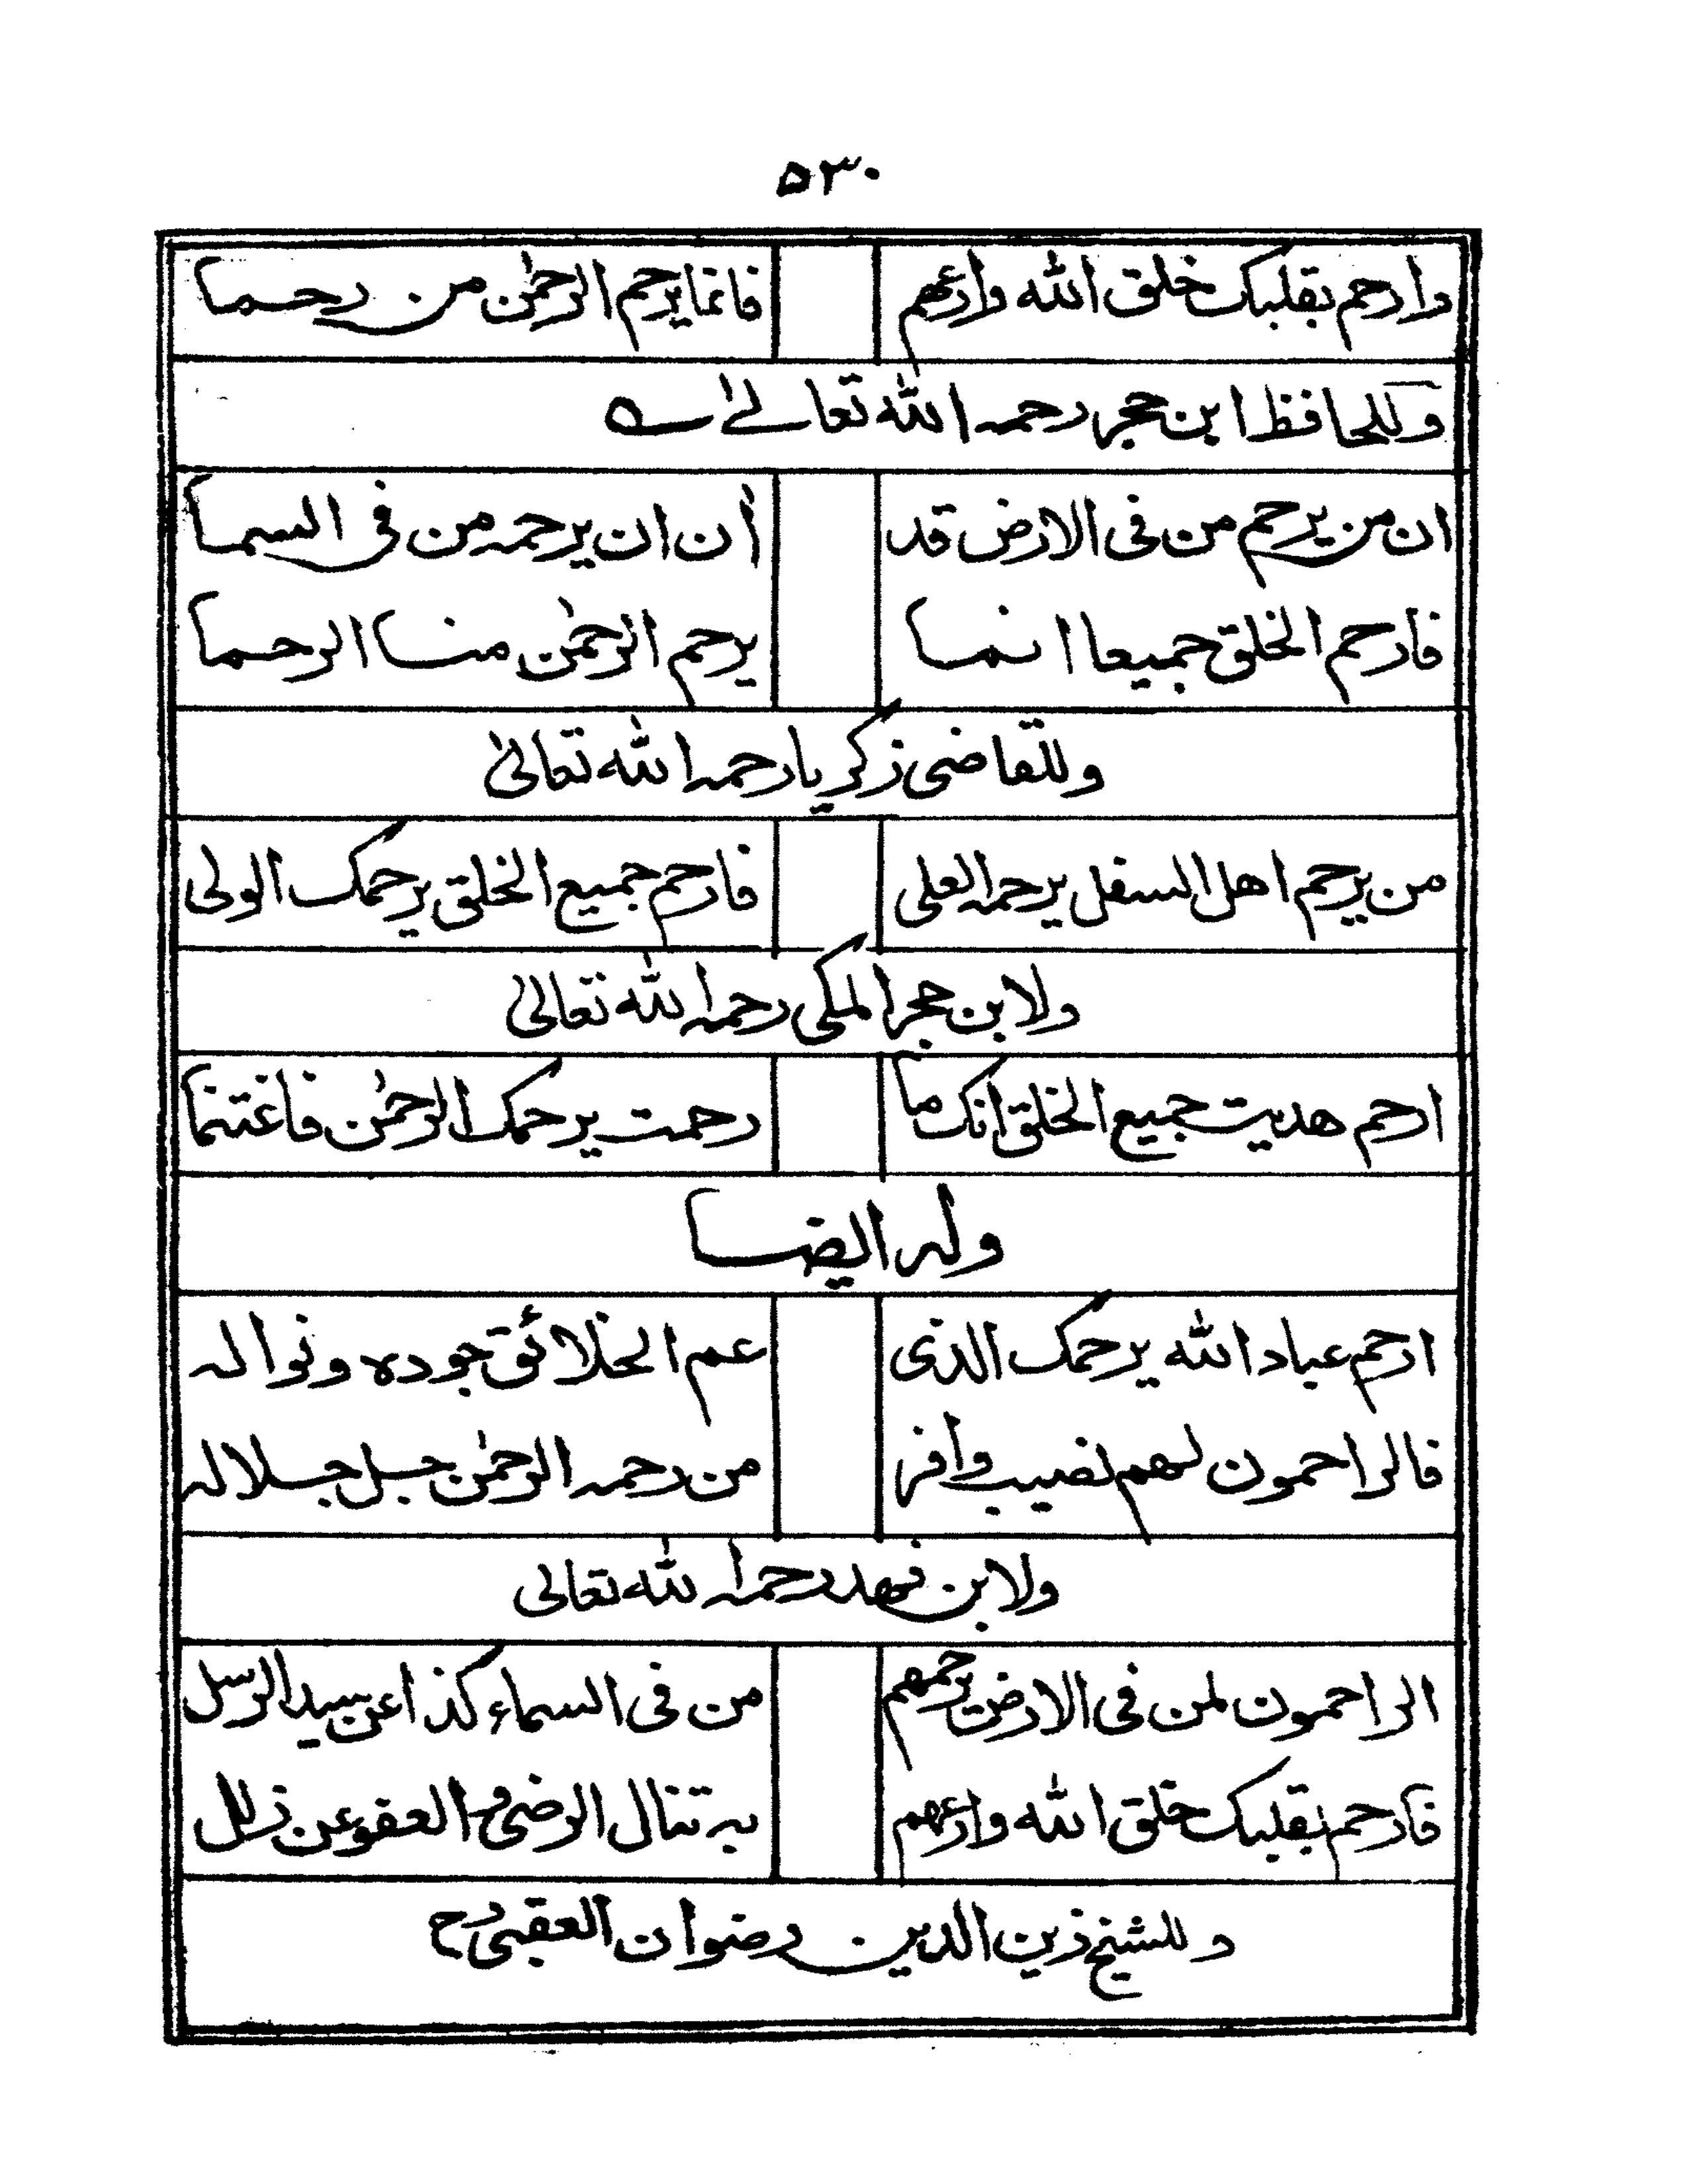 ٥٣٠
وارحم بقلبك خلق الله وارعهم فانما يرحم الرحمٰن من رحما
وللحافظ ابن حجر رحمه الله تعالىٰ
ان من يرحم من فى الارض قد أن ان يرحمه من فى السما
فارحم الخلق جميعا انما يرحم الرحمٰن منا الرحما
وللقاضى زكريا رحمه الله تعالىٰ
من يرحم اهل السفل يرحمه العلى فارحم جميع الخلق يرحمك الولى
ولابن حجر المكى رحمه الله تعالى
ارحم هديت جميع الخلق انك ما رحمت يرحمك الرحمٰن فاغتنما
وله ايضا
ارحم عباد الله يرحمك الذى عم الخلائق جوده ونواله
فالراحمون لهم نصيب وافر من رحمه الرحمٰن جل جلاله
ولابن فهد رحمه الله تعالى
الراحمون لمن فى الارض يرحمهم من فى السماء كذا عن سيد الرسل
فارحم بقلبك خلق الله وارعهم به تنال الرضى والعفو عن زلل
وللشيخ زين الدين رضوان العقبى رح